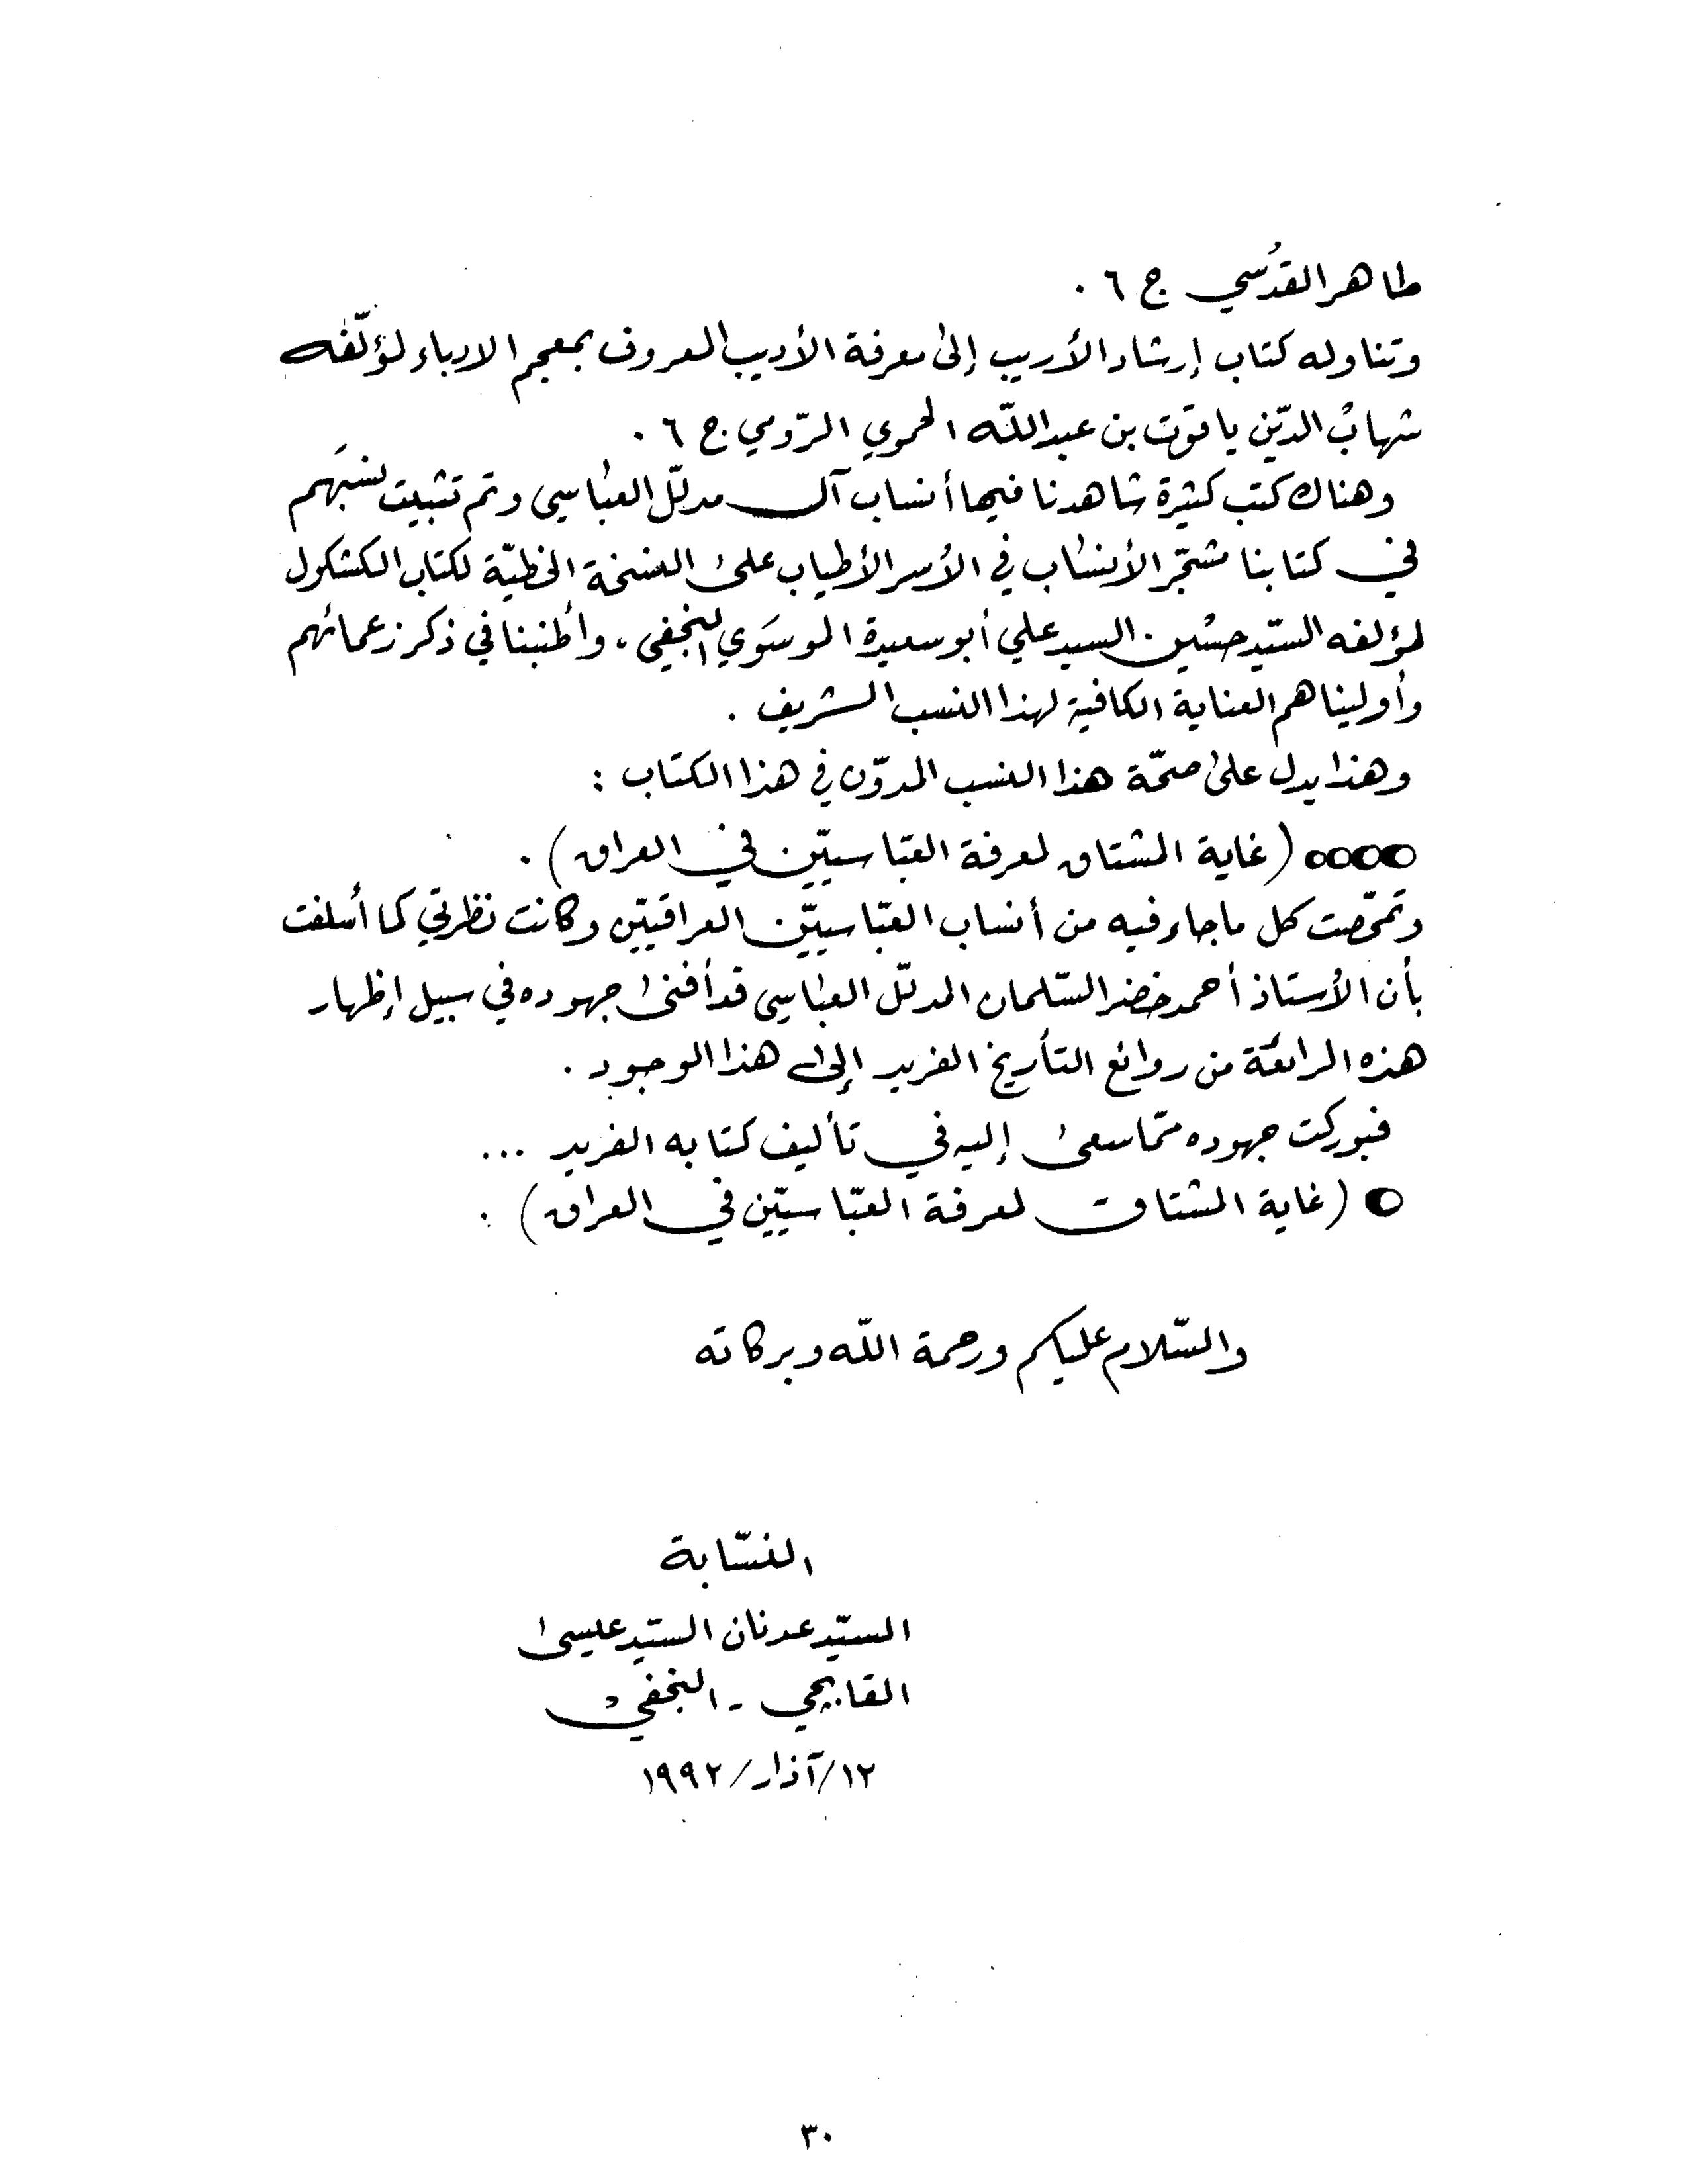 طاهر القدُسي ج ٦ .
وتناوله كتاب إرشاد الأريب إلى معرفة الأديب المعروف بمعجم الادباء لمؤلّفه
شهابُ الدّين ياقوت بن عبد اللّه الحموي الرّومي ج ٦ .
وهناك كتب كثيرة شاهدنا فيها أنساب آل مدلّل العبّاسي وتم تثبيت نسبَهم
في كتابنا مشجّر الأنسّاب في الأسر الأطياب على النسخة الخطيّة لكتاب الكشكول
لمؤلفه السيّد حسين السيد علي أبو سعيدة الموسَوي النجفي ، وأطنبنا في ذكر زعمائهم
وأوليناهم العناية الكافية لهذا النسب الشريف .
وهذا يدل على صحّة هذا النسب المدوّن في هذا الكتاب :
(غاية المشتاق لمعرفة العبّاسييّن في العراق) .
وتمحّصت كل ما جاء فيه من أنساب العبّاسييّن العراقييّن وكانت نظرتي كما أسلفت
بأن الأستاذ أحمد خضر السّلمان المدلّل العبّاسي قد أفنى جهوده في سبيل إظهار
هذه الرائعة من روائع التأريخ الفريد إلى هذا الوجود .
فبوركت جهوده ممّا سعى إليه في تأليف كتابه الفريد ...
(غاية المشتاق لمعرفة العبّاسييّن في العراق) .
والسّلام عليكم ورحمة اللّه وبركاته
النسّابة
السيّد عدنان السيّد عيسى
القابجي - النجفي
١٢/آذار/١٩٩٢
٣٠